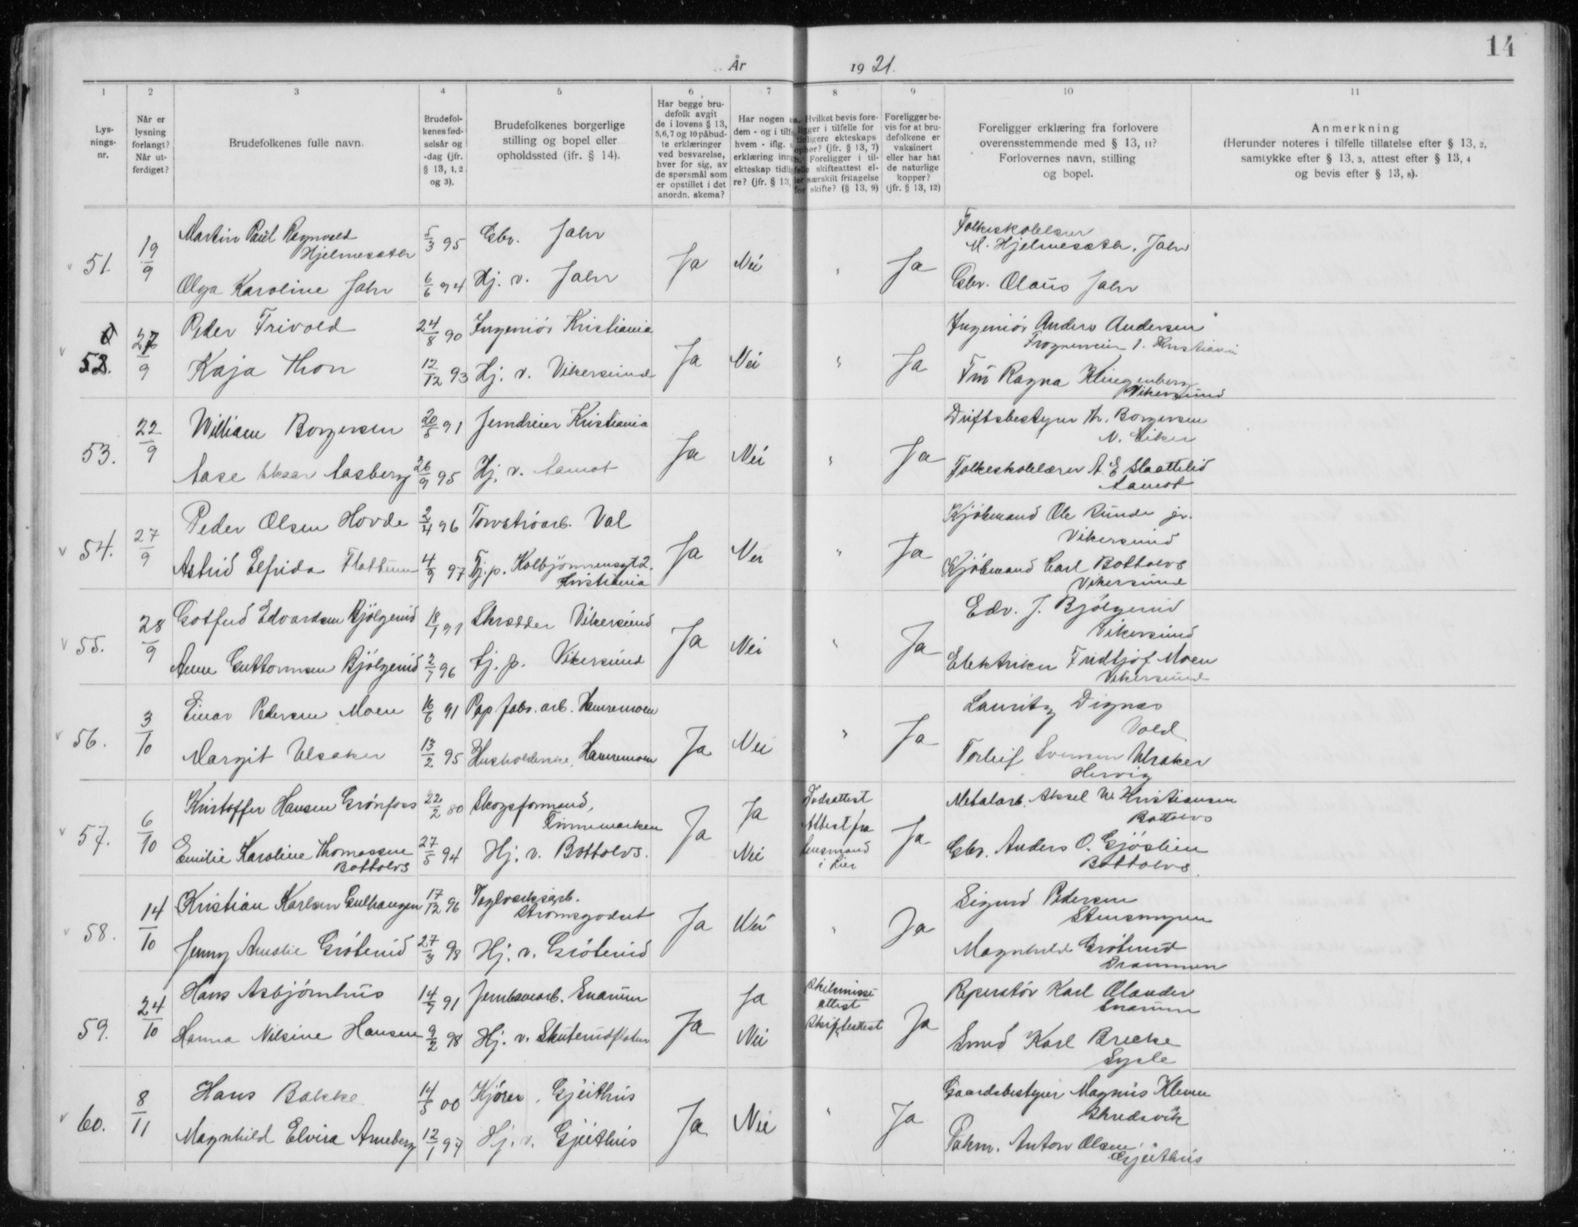 14
År 1921.
1 2 3 4 5 6 7 8 9 10 11
Lys-
nings-
nr.
Når er
lysning
forlangt?
Når ut-
ferdiget?
Brudefolkenes fulle navn.
Brudefol-
kenes fød-
selsår og
-dag (jfr.
§ 13, 1, 2
og 3).
Brudefolkenes borgerlige
stilling og bopel eller
opholdssted (ifr. § 14).
Har begge bru-
defolk avgit
de i lovens § 13,
5,6,7 og 10 påbud-
te erklæringer
ved besvarelse,
hver for sig, av
de spørsmål som
er opstillet i det
anordn. skema?
Har nogen
dem - og i tilf
hvem - iflg.
erklæring inn
ekteskap tidl
re? (jfr. § 13,
Hvilket bevis fore-
ligger i tilfelle for
tidligere ekteskaps
ophør? (jfr. § 13, 7)
Foreligger i til-
felle skifteattest el-
ler særskilt fritagelse
for skifte? (§ 13, 9)
Foreligger be-
vis for at bru-
defolkene er
vaksinert
eller har hat
de naturlige
kopper?
(jfr. § 13, 12)
Foreligger erklæring fra forlovere
overensstemmende med § 13, 11?
Forlovernes navn, stilling
og bopel.
Anmerkning
(Herunder noteres i tilfelle tillatelse efter § 13, 2,
samtykke efter § 13, 3, attest efter § 13, 4
og bevis efter § 13, 8).
51. 19/9 Martin Paul Ragnvald Hjelmesæter 5/3 95 Gbr. Jahr Ja Nei " Ja Folkeskolelærer
M. Hjelmesæter, Jahr
Olga Karoline Jahr 6/6 94 Hj. v. Jahr Gbr. Olaus Jahr
52. 27/9 Peder Trivold 24/8 90 Ingeniør Kristiania Ja Nei " Ja Ingeniør Anders Andersen
Frognerveien 1. Kristiania
Kaja Thon 12/12 93 Hj. v. Vikersund Fru Ragna Klingenberg
Vikersund
53. 22/9 William Borgersen 20/5 91 Jerndreier Kristiania Ja Nei " Ja Driftsbestyrer Th. Borgersen
N. Eiker
Aase Skaar Aasberg 26/9 95 Hj. v. Aamot Folkeskolelærer A. E. Slaattelid
Aamot
54. 27/9 Peder Olsen Hovde 2/4 96 Torvstrøarb. Val Ja Nei " Ja Kjøbmand Ole Sunde jr.
Vikersund
Astrid Elfrida Flattum 4/9 97 Tj.p. Kolbjørnsensgt 2.
Kristiania
Kjøbmand Carl Bottolvs
Vikersund
55. 28/9 Gotfred Edvardsen Bjølgerud 18/1 91 Skrædder Vikersund Ja Nei " Ja Edv. J. Bjølgerud
Vikersund
Anne Guttormsen Bjølgerud 2/7 96 Tj. p. Vikersund Elektriker Fridtjof Moen
Vikersund
56. 3/10 Einar Pedersen Moen 16/6 91 Papfabr. arb. Hæremoen Ja Nei " Ja Lauritz Dignæs
Vold
Margit Ulsaker 13/2 95 Husholderske, Hæremoen Torleif Svensen Ulsaker
Hervig
57. 6/10 Kristoffer Hansen Grønfoss 22/2 80 Skogsformand,
Finnemarken
Ja Ja Dødsattest
Attest fra
lensmand
i Lier
Ja Metalarb. Aksel W. Kristiansen
Bottolvs
Emilie Karoline Thomassen
Bottolvs
27/5 94 Hj. v. Bottolvs. Nei Gbr. Anders O. Gjøslien
Bottolvs.
58. 14/10 Kristian Karlsen Gulhaugen 17/12 96 Teglverksarb.
Strømsgodset
Ja Nei " Ja Sigurd Pedersen
Stensmyren
Jenny Amalie Grøterud 27/3 98 Hj. v. Grøterud Magnhild Grøterud
Drammen
59. 24/10 Hans Asbjørnhus 14/7 91 Jernbanearb. Snarum Ja Ja Skilsmisse
attest
Skifteattest
Ja Reparatør Karl Olander
Snarum
Hanna Nilsine Hansen 9/2 98 Hj. v. Skuterudflaten Nei Smed Karl Bricke
Sysle
60. 8/11 Hans Bakke 14/5 00 Kjører, Gjeithus Ja Nei " Ja Gaardsbestyrer Magnus Kleven
Skredsvik
Magnhild Elvira Arneberg 12/1 97 Hj. v. Gjeithus Pakm. Anton Olsen
Gjeithus